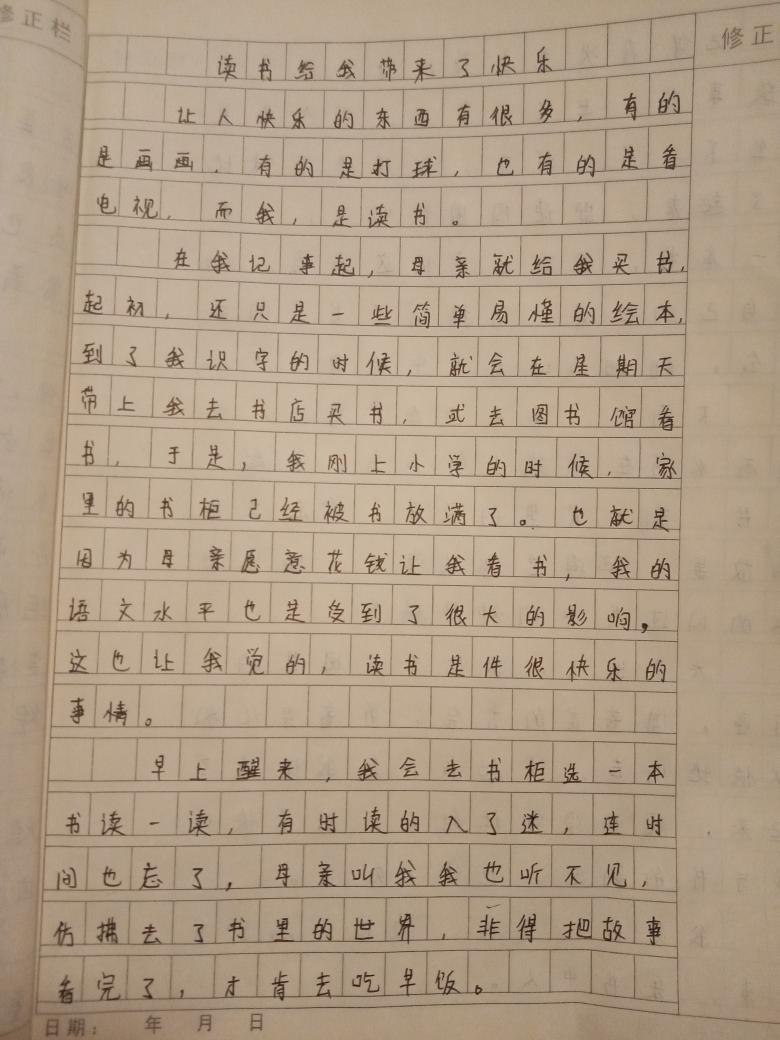 修正栏
修正
读书给我带来了快乐
让人快乐的东西有很多，有的
是画画，有的是打球，也有的是看
电视，而我，是读书。
在我记事起，母亲就给我买书，
起初，还只是一些简单易懂的绘本，
到了我识字的时候，就会在星期天
带上我去书店买书，或去图书馆看
书，于是，我刚上小学的时候，家
里的书柜已经被书放满了。也就是
因为母亲愿意花钱让我看书，我的
语文水平也是受到了很大的影响，
这也让我觉的，读书是件很快乐的
事情。
早上醒来，我会去书柜选一本
书读一读，有时读的入了迷，连时
间也忘了，母亲叫我我也听不见，
仿拂去了书里的世界，非得把故事
看完了，才肯去吃早饭。
日期： 年 月 日